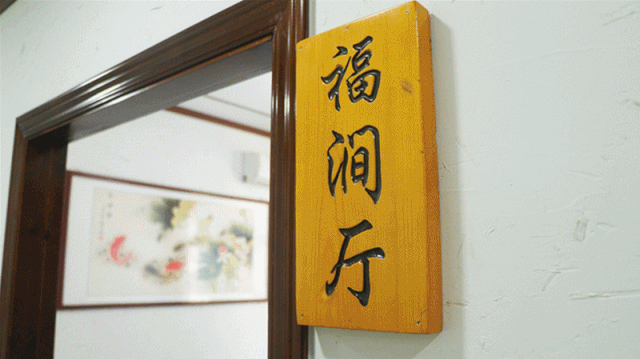 福涧厅